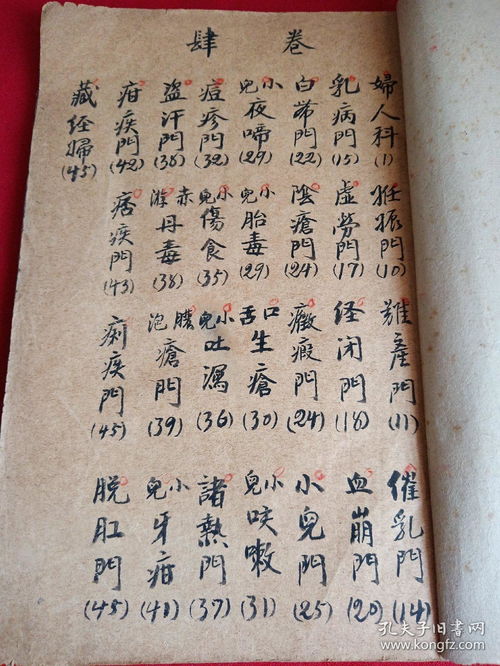 卷肆
婦人科(1) 妊娠門(10) 難產門(11) 催乳門(14)
乳病門(15) 虛勞門(17) 经闭門(18) 血崩門(20)
白帶門(22) 陰瘡門(24) 癥瘕門(24) 小兒門(25)
小兒夜啼(29) 小兒胎毒(29) 口舌生瘡(30) 小兒咳嗽(31)
痘疹門(32) 小兒傷食(35) 小兒吐瀉(36) 諸熱門(37)
盜汗門(38) 赤游丹毒(38) 膿泡瘡門(39) 小兒牙疳(41)
疳疾門(42) 痞疾門(43) 痢疾門(45) 脱肛門(45)
藏经婦(45)
孔夫子旧书网
www.kongfz.com